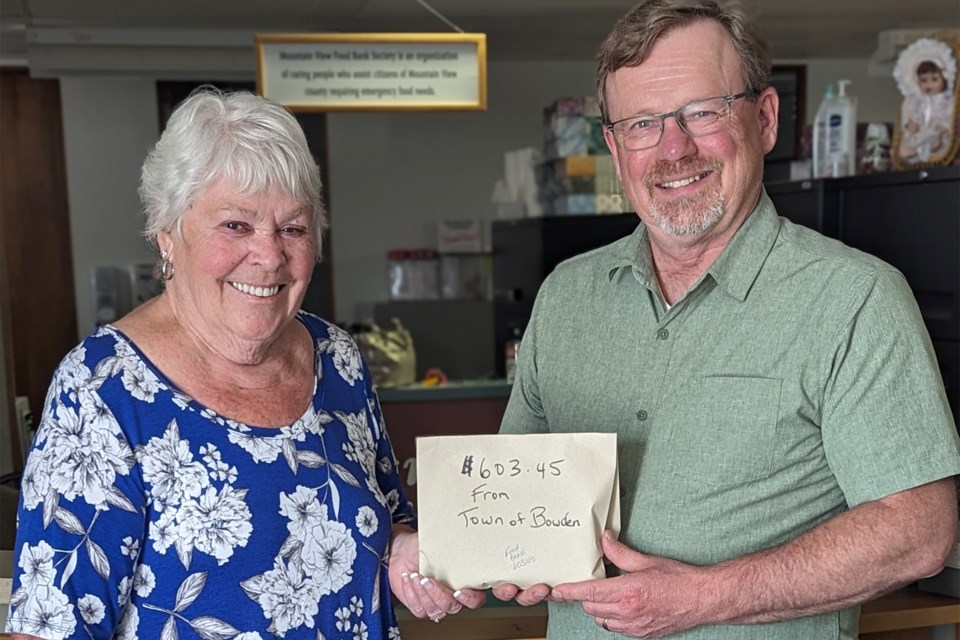 Mountain View Food Bank Society is an organization
of caring people who assist citizens of Mountain View
county requiring emergency food needs.
$603.45
From
Town of Bowden
Food
Bank